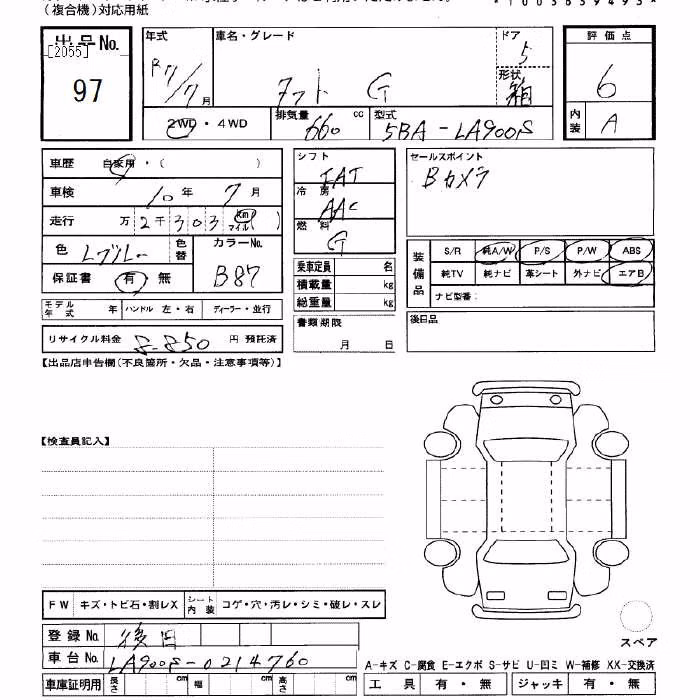 (複合機)対応用紙
出品No.
[2055]
97
年式
R7/7月
車名・グレード
タフト G
ドア
5
形状
箱
評価点
6
内装
A
2WD・4WD
排気量 660 cc
型式 5BA-LA900S
車歴 自家用・( )
車検 10年 7月
走行 万2千303 Km マイル( )
色 Lブルー
色替
カラーNo.
B87
保証書 有 無
モデル年式 年 ハンドル 左・右 ディーラー・並行
リサイクル料金 8,850 円 預託済
シフト
IAT
冷房
AAC
燃料
G
乗車定員 名
積載量 kg
総重量 kg
書類期限
月 日
セールスポイント
Bカメラ
装備品
S/R 純A/W P/S P/W ABS
純TV 純ナビ 革シート 外ナビ エアB
ナビ型番:
後日品
【出品店申告欄(不良箇所・欠品・注意事項等)】
【検査員記入】
FW キズ・トビ石・割レX シート内装 コゲ・穴・汚レ・シミ・破レ・スレ
登録No. 後日
車台No. LA900S-0214760
車庫証明用 長さ cm 幅 cm 高さ cm
スペア
A-キズ C-腐食 E-エクボ S-サビ U-凹ミ W-補修 XX-交換済
工具 有・無 ジャッキ 有・無